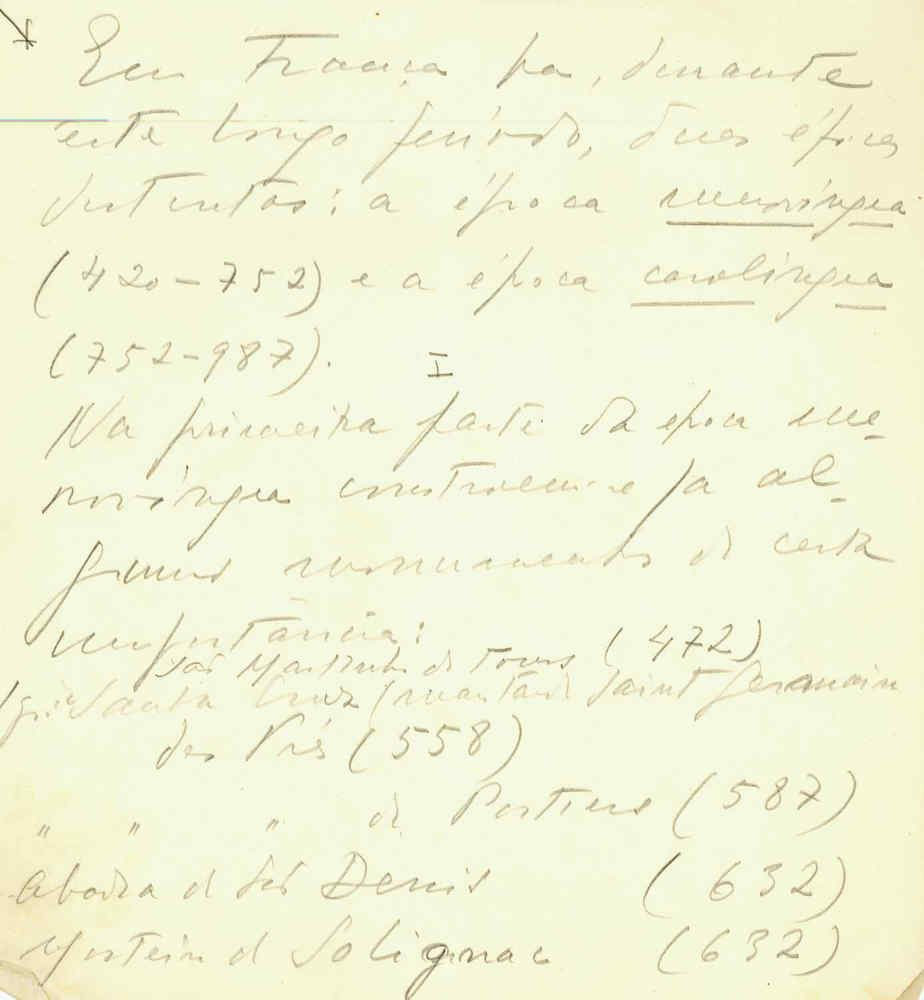 Em França ha, durante
este longo período, duas épocas
distintas: a época merovíngea
(420-752) e a época carolíngea
(752-987).
I
Na primeira parte da epoca me-
rovíngea construem-se ja al-
guns monumentos de certa
importância:
São Martinho de Tours (472)
Igreja Santa Cruz (mais tarde Saint Germain
des Prés (558)
" " " de Poitiers (587)
Abadia de São Denis (632)
Mosteiro de Solignac (632)